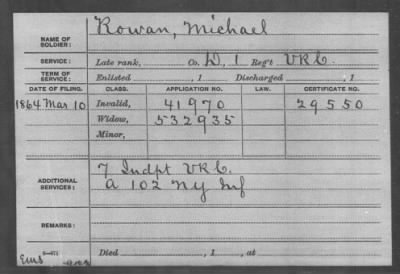 NAME OF SOLDIER: Rowan, Michael
SERVICE: Late rank, Co. D, 1 Reg't VRC.
TERM OF SERVICE: Enlisted , 1 Discharged , 1
DATE OF FILING. CLASS. APPLICATION NO. LAW. CERTIFICATE NO.
1864 Mar 10 Invalid, 41970 29550
Widow, 532935
Minor,
ADDITIONAL SERVICES: 7 Indpt VRC.
A 102 NY Inf
REMARKS:
Died , 1 , at